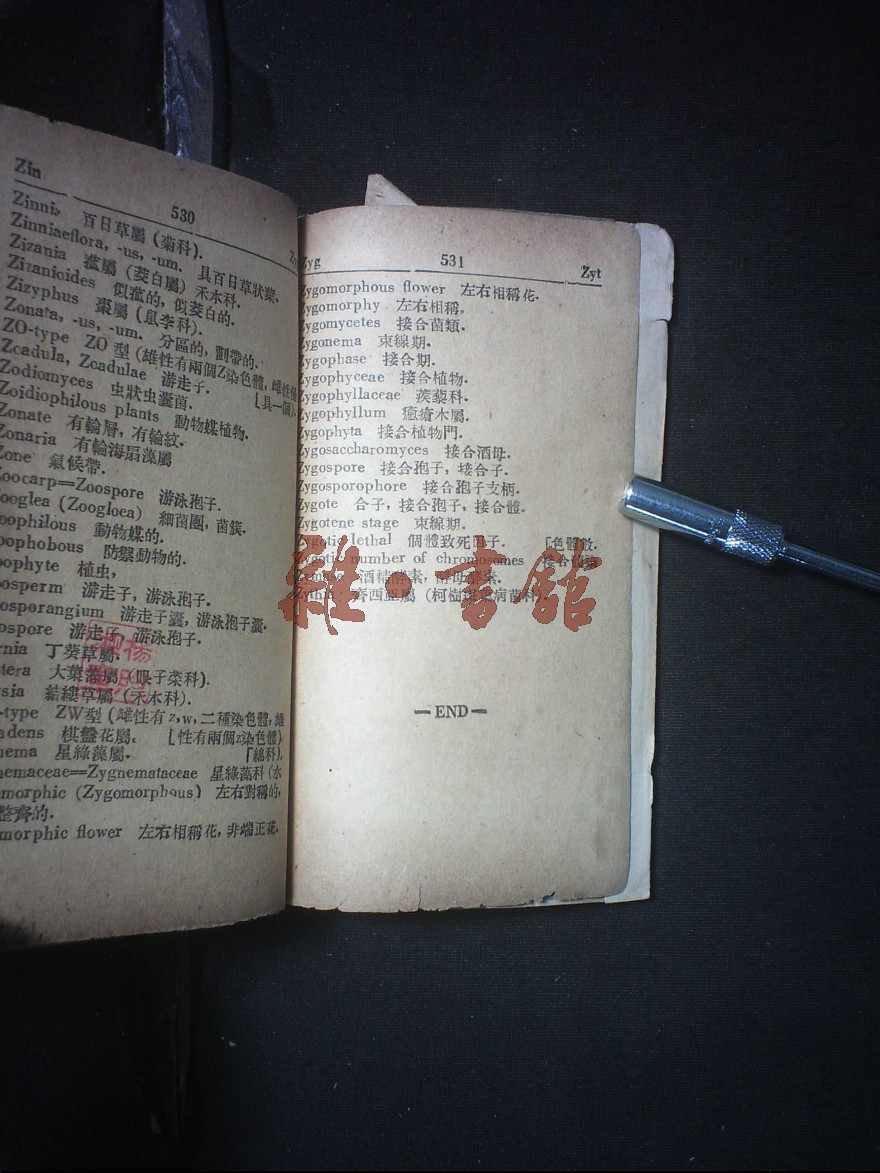 Zin 530
Zinnia 百日草屬 (菊科).
Zinniaeflora, -us, -um. 具百日草狀葉.
Zizania 菰屬 (茭白屬) 禾本科.
Zizanioides 似菰的, 似茭白的.
Zizyphus 棗屬 (鼠李科).
Zonata, -us, -um. 分區的, 劃帶的.
ZO-type ZO 型 (雄性有兩個Z染色體, 雌性
Zcadula, Zcadulae 游走子. ⌊具一個).
Zodiomyces 虫狀虫囊菌.
Zoidiophilous plants 動物媒植物.
Zonate 有輪層, 有輪紋.
Zonaria 有輪海扇藻屬
Zone 氣候帶.
Zoocarp=Zoospore 游泳孢子.
ooglea (Zoogloea) 細菌團, 菌簇.
oophilous 動物媒的.
oophobous 防禦動物的.
oophyte 植虫,
oosperm 游走子, 游泳孢子.
oosporangium 游走子囊, 游泳孢子囊.
ospore 游走子, 游泳孢子.
rnia 丁葵草屬.
tera 大葉藻屬 (眼子菜科).
sia 結縷草屬 (禾本科).
-type ZW型 (雌性有z,w,二種染色體, 雄
dens 棋盤花屬. ⌊性有兩個z染色體)
nema 星綠藻屬. 「綿科).
nemaceae=Zygnemataceae 星綠藻科 (水
morphic (Zygomorphous) 左右對稱的,
整齊的.
morphic flower 左右相稱花, 非端正花.
Zyg 531 Zyt
Zygomorphous flower 左右相稱花.
Zygomorphy 左右相稱.
Zygomycetes 接合菌類.
Zygonema 束線期.
Zygophase 接合期.
Zygophyceae 接合植物.
Zygophyllaceae 蒺藜科.
Zygophyllum 癒瘡木屬.
Zygophyta 接合植物門.
Zygosaccharomyces 接合酒母.
Zygospore 接合孢子, 接合子.
Zygosporophore 接合孢子支柄.
Zygote 合子, 接合孢子, 接合體.
Zygotene stage 束線期.
Zygotic lethal 個體致死因子. 「色體數.
Zygotic number of chromosomes 接合
酒精酵素,
齊西亞屬
—END—
雜書館